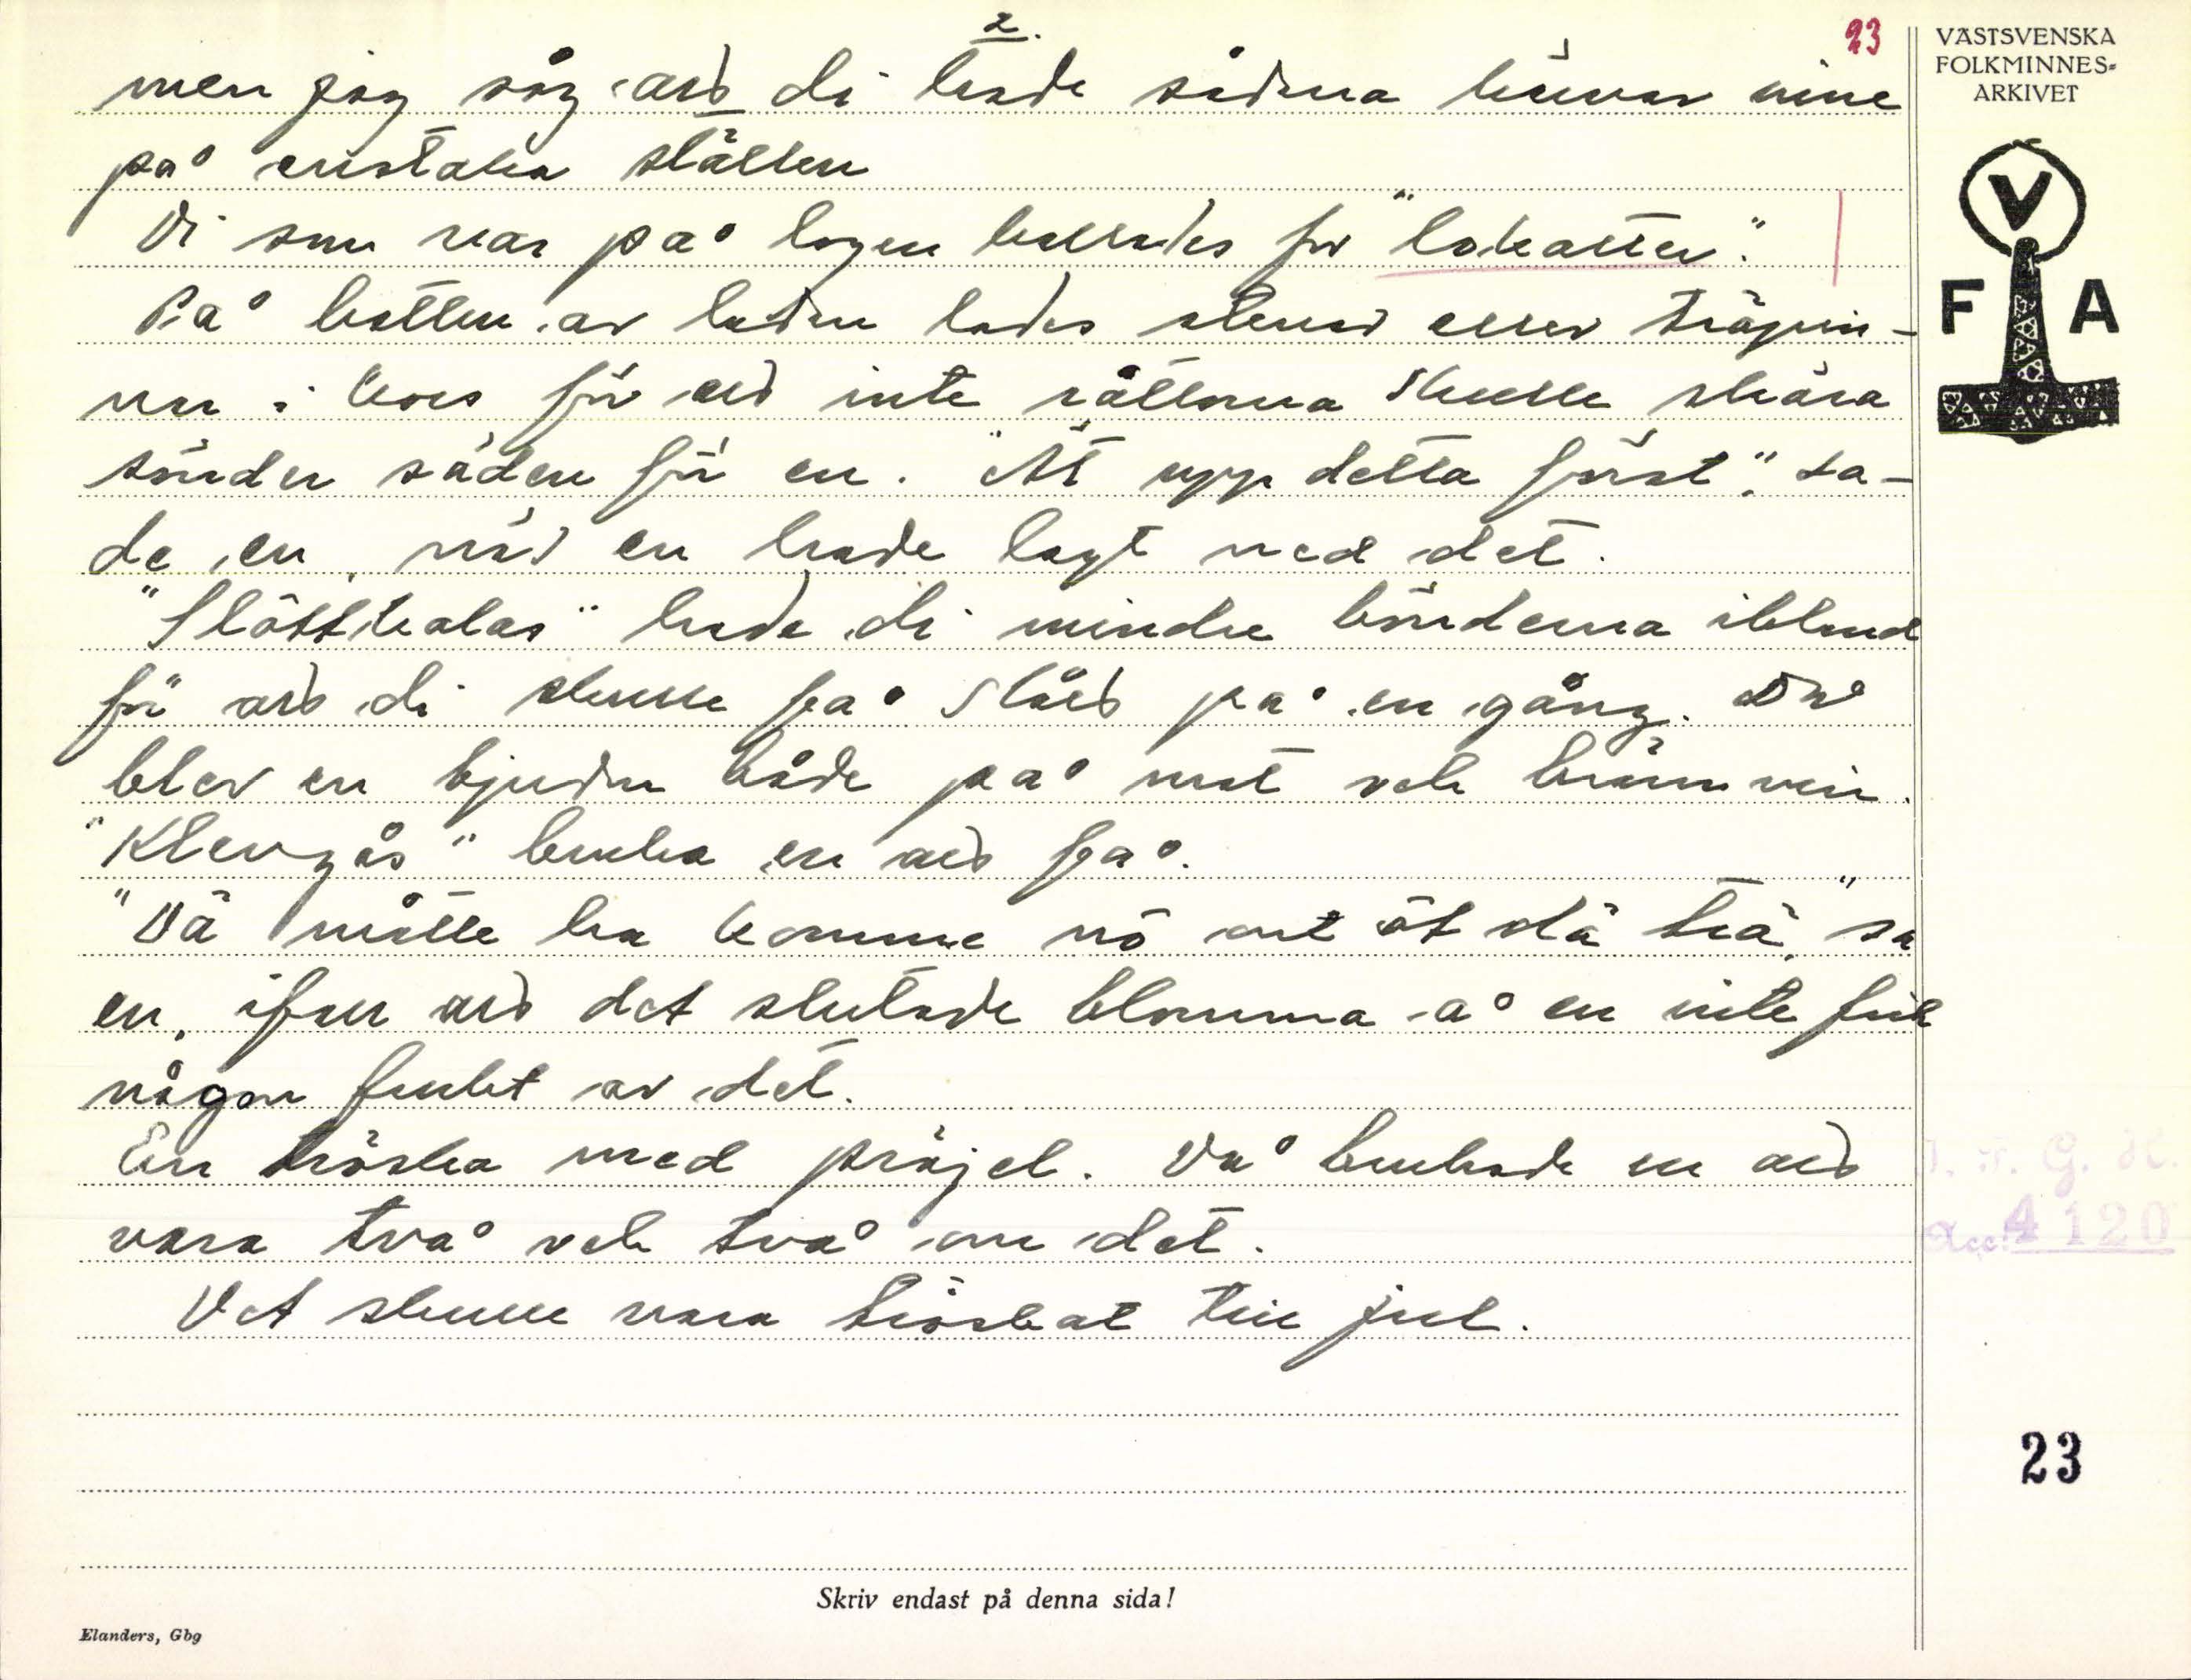 2.
23
men jag såg att di hade sådana hönor inne
på enstaka ställen
Vi som var på logen kallades för "lokatter".
På botten av ladan lades stenar eller träpin-
nar i kors för att inte råttorna skulle skära
sönder säden för en. "Ät upp detta först", sa-
de en, när en hade lagt ned det.
"Slåttkalas" hade di mindre bönderna ibland
för att di skulle få slått på en gång. Då
blev en bjuden både på mat och brännvin.
"Klevgås" bruka en att få.
"Dä måtte ha komme nô ont åt dä trä," sa
en, ifall att det slutade blomma å en inte fick
någon frukt av det.
En tröska med präjel. Då brukade en att
vara två och två om det.
Det skulle vara tröskat till jul.
Skriv endast på denna sida!
Elanders, Gbg
VÄSTSVENSKA
FOLKMINNES-
ARKIVET
V
F A
I. F. G. H.
Acc. 4120
23